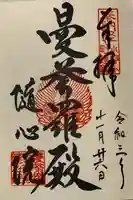 奉拝
令和三年
十一月廿六日
曼荼羅殿
随心院